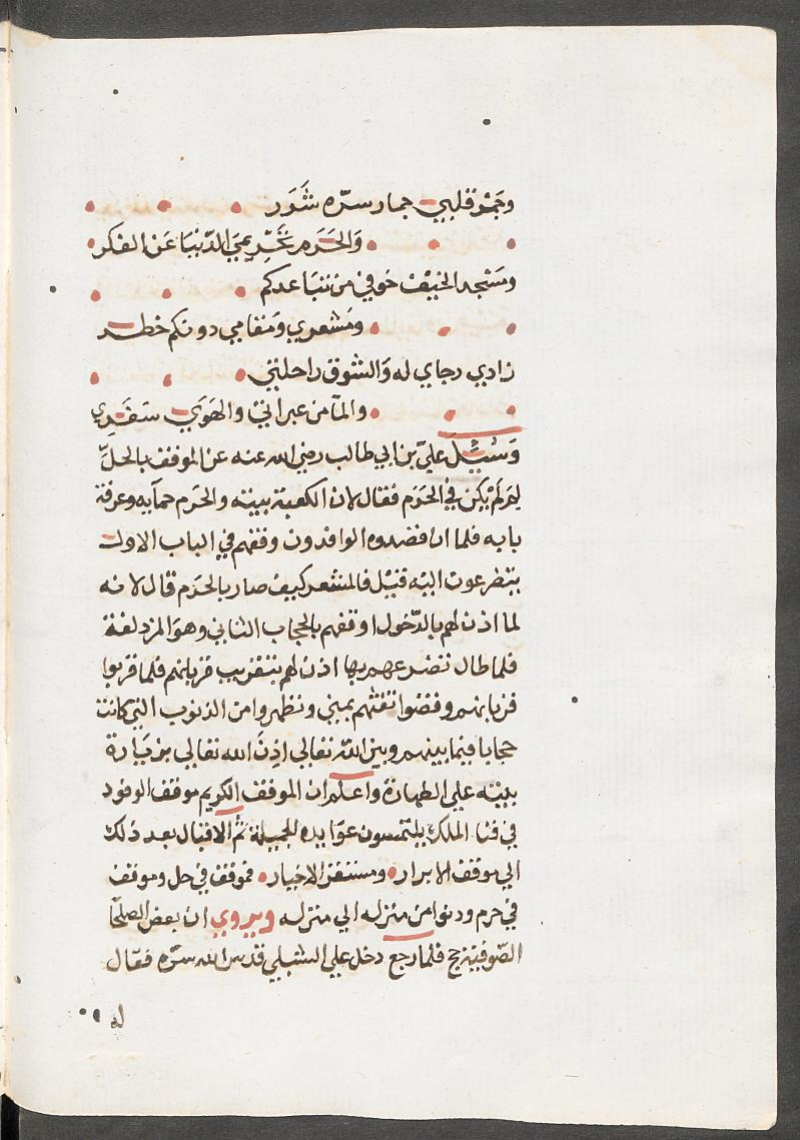 وجمر قلبي جمار سرّه شَوَر
والحَرَم تحريمي الدّنيا عَن الفكر
ومَسْجد الخيْف خوفي من تباعدكم
ومَشعري ومَقامي دونكم خطر
زادي رجاي له وَالشوق راحلتي
والمآ من عبراتي والهَوَي سَفَرِي
وَسُئِلَ عليّ بن ابي طالب رضي الله عنه عن الموقف بالحلّ
لِمَ لَمْ يَكن في الحَرَم فقال لان الكعبة بيته والحَرَم حمآيه وعرفة
بابه فلما ان قصدوه الوافدون وقفهم في الباب الاول
يتضرعون اليْه قيْل فالمشعر كيف صار بالحَرَم قال لانه
لما اذن لهم بالدّخول اوقفهم بالحجاب الثاني وهوَ المزدلفة
فلما طال تضرعهم بها اذن لهم بتقريب قربانهم فلما قربوا
قربانهم وقضوا تفثهم بمني وتطهروا من الذنوب التي كانت
حجابا فيما بينهم وبين الله تعالي اذِنَ الله تعالي بزيَارة
بيْته علي الطهارة واعلم ان الموقف الكريم موقف الوفود
في فنا الملك يلتمسون عوَايده الجميلة ثمّ الاقبال بعد ذلك
الي موقف الابرار ومستقر الاخيار فموقف في حل وموقف
في حرم ودنوا من منزله الي منزله ويروي ان بعض الصلحآ
الصّوفية حج فلما رجع دخل علي الشبلي قدس الله سرّه فقال
له